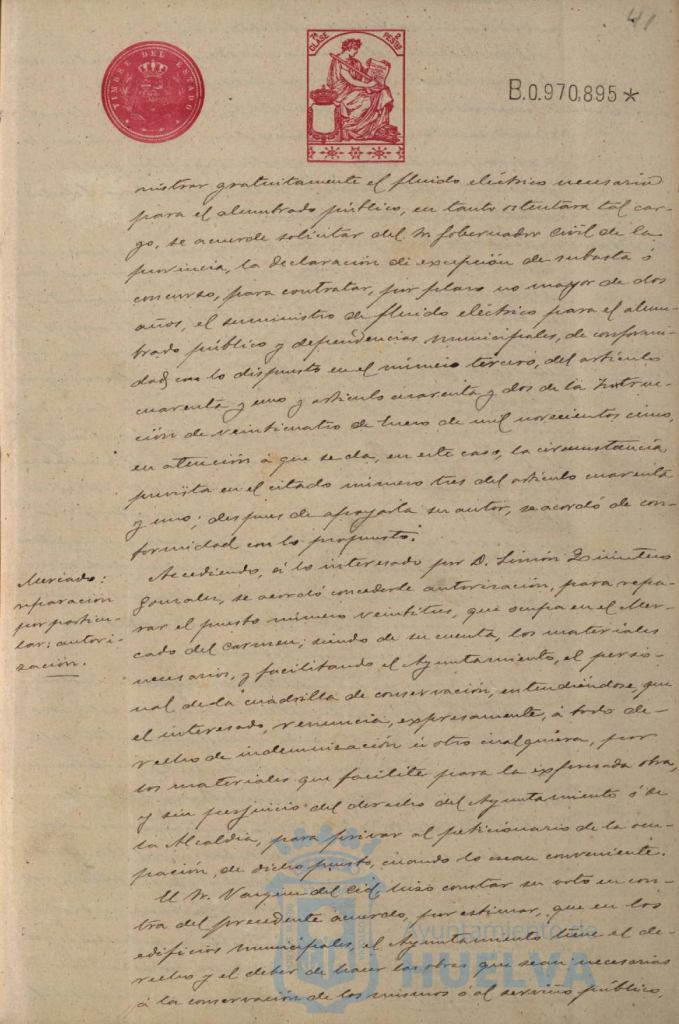 41
TIMBRE DEL ESTADO
7ª CLASE
2 PESETAS
B.0.970.895*
nistrar gratuitamente el fluido eléctrico necesario
para el alumbrado público, en tanto ostentara tal car-
go, se acuerde solicitar del Sr. Gobernador Civil de la
provincia, la declaración de excepción de subasta ó
concurso, para contratar, por plazo no mayor de dos
años, el suministro de fluido eléctrico para el alum-
brado público y dependencias municipales, de conformi-
dad con lo dispuesto en el número tercero, del artículo
cuarenta y uno y artículo cuarenta y dos de la Instruc-
ción de veinticuatro de Enero de mil novecientos cinco,
en atención á que se da, en este caso, la circunstancia
prevista en el citado número tres del artículo cuarenta
y uno; despues de apoyarla su autor, se acordó de con-
formidad con lo propuesto.
Mercado:
reparación
por particu-
lar: autori-
zación.
Accediendo, á lo interesado por D. Simón Quintero
Gonzalez, se acordó concederle autorización, para repa-
rar el puesto número veintitres, que ocupa en el Mer-
cado del Carmen; siendo de su cuenta, los materiales
necesarios, y facilitando el Ayuntamiento, el perso-
nal de la cuadrilla de conservación, entendiéndose, que
el interesado, renuncia, expresamente, á todo de-
recho de indemnización ú otro cualquiera, por
los materiales que facilite para la expresada obra,
y sin perjuicio del derecho del Ayuntamiento ó de
la Alcaldía, para privar al peticionario de la ocu-
pación, de dicho puesto, cuando lo crean conveniente.
El Sr. Vazquez del Cid, hizo constar su voto en con-
tra del precedente acuerdo, por estimar, que en los
edificios municipales, el Ayuntamiento tiene el de-
recho y el deber de hacer las obras que sean necesarias
á la conservación de los mismos ó al servicio público,
Ayuntamiento de
HUELVA